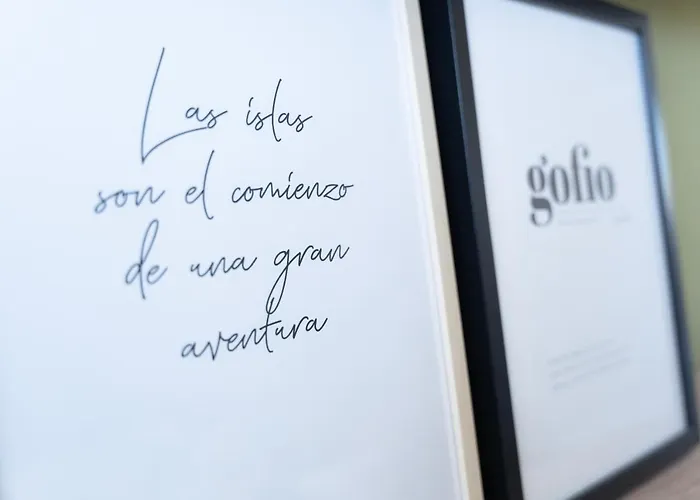 Las islas
son el comienzo
de una gran
aventura
gofio